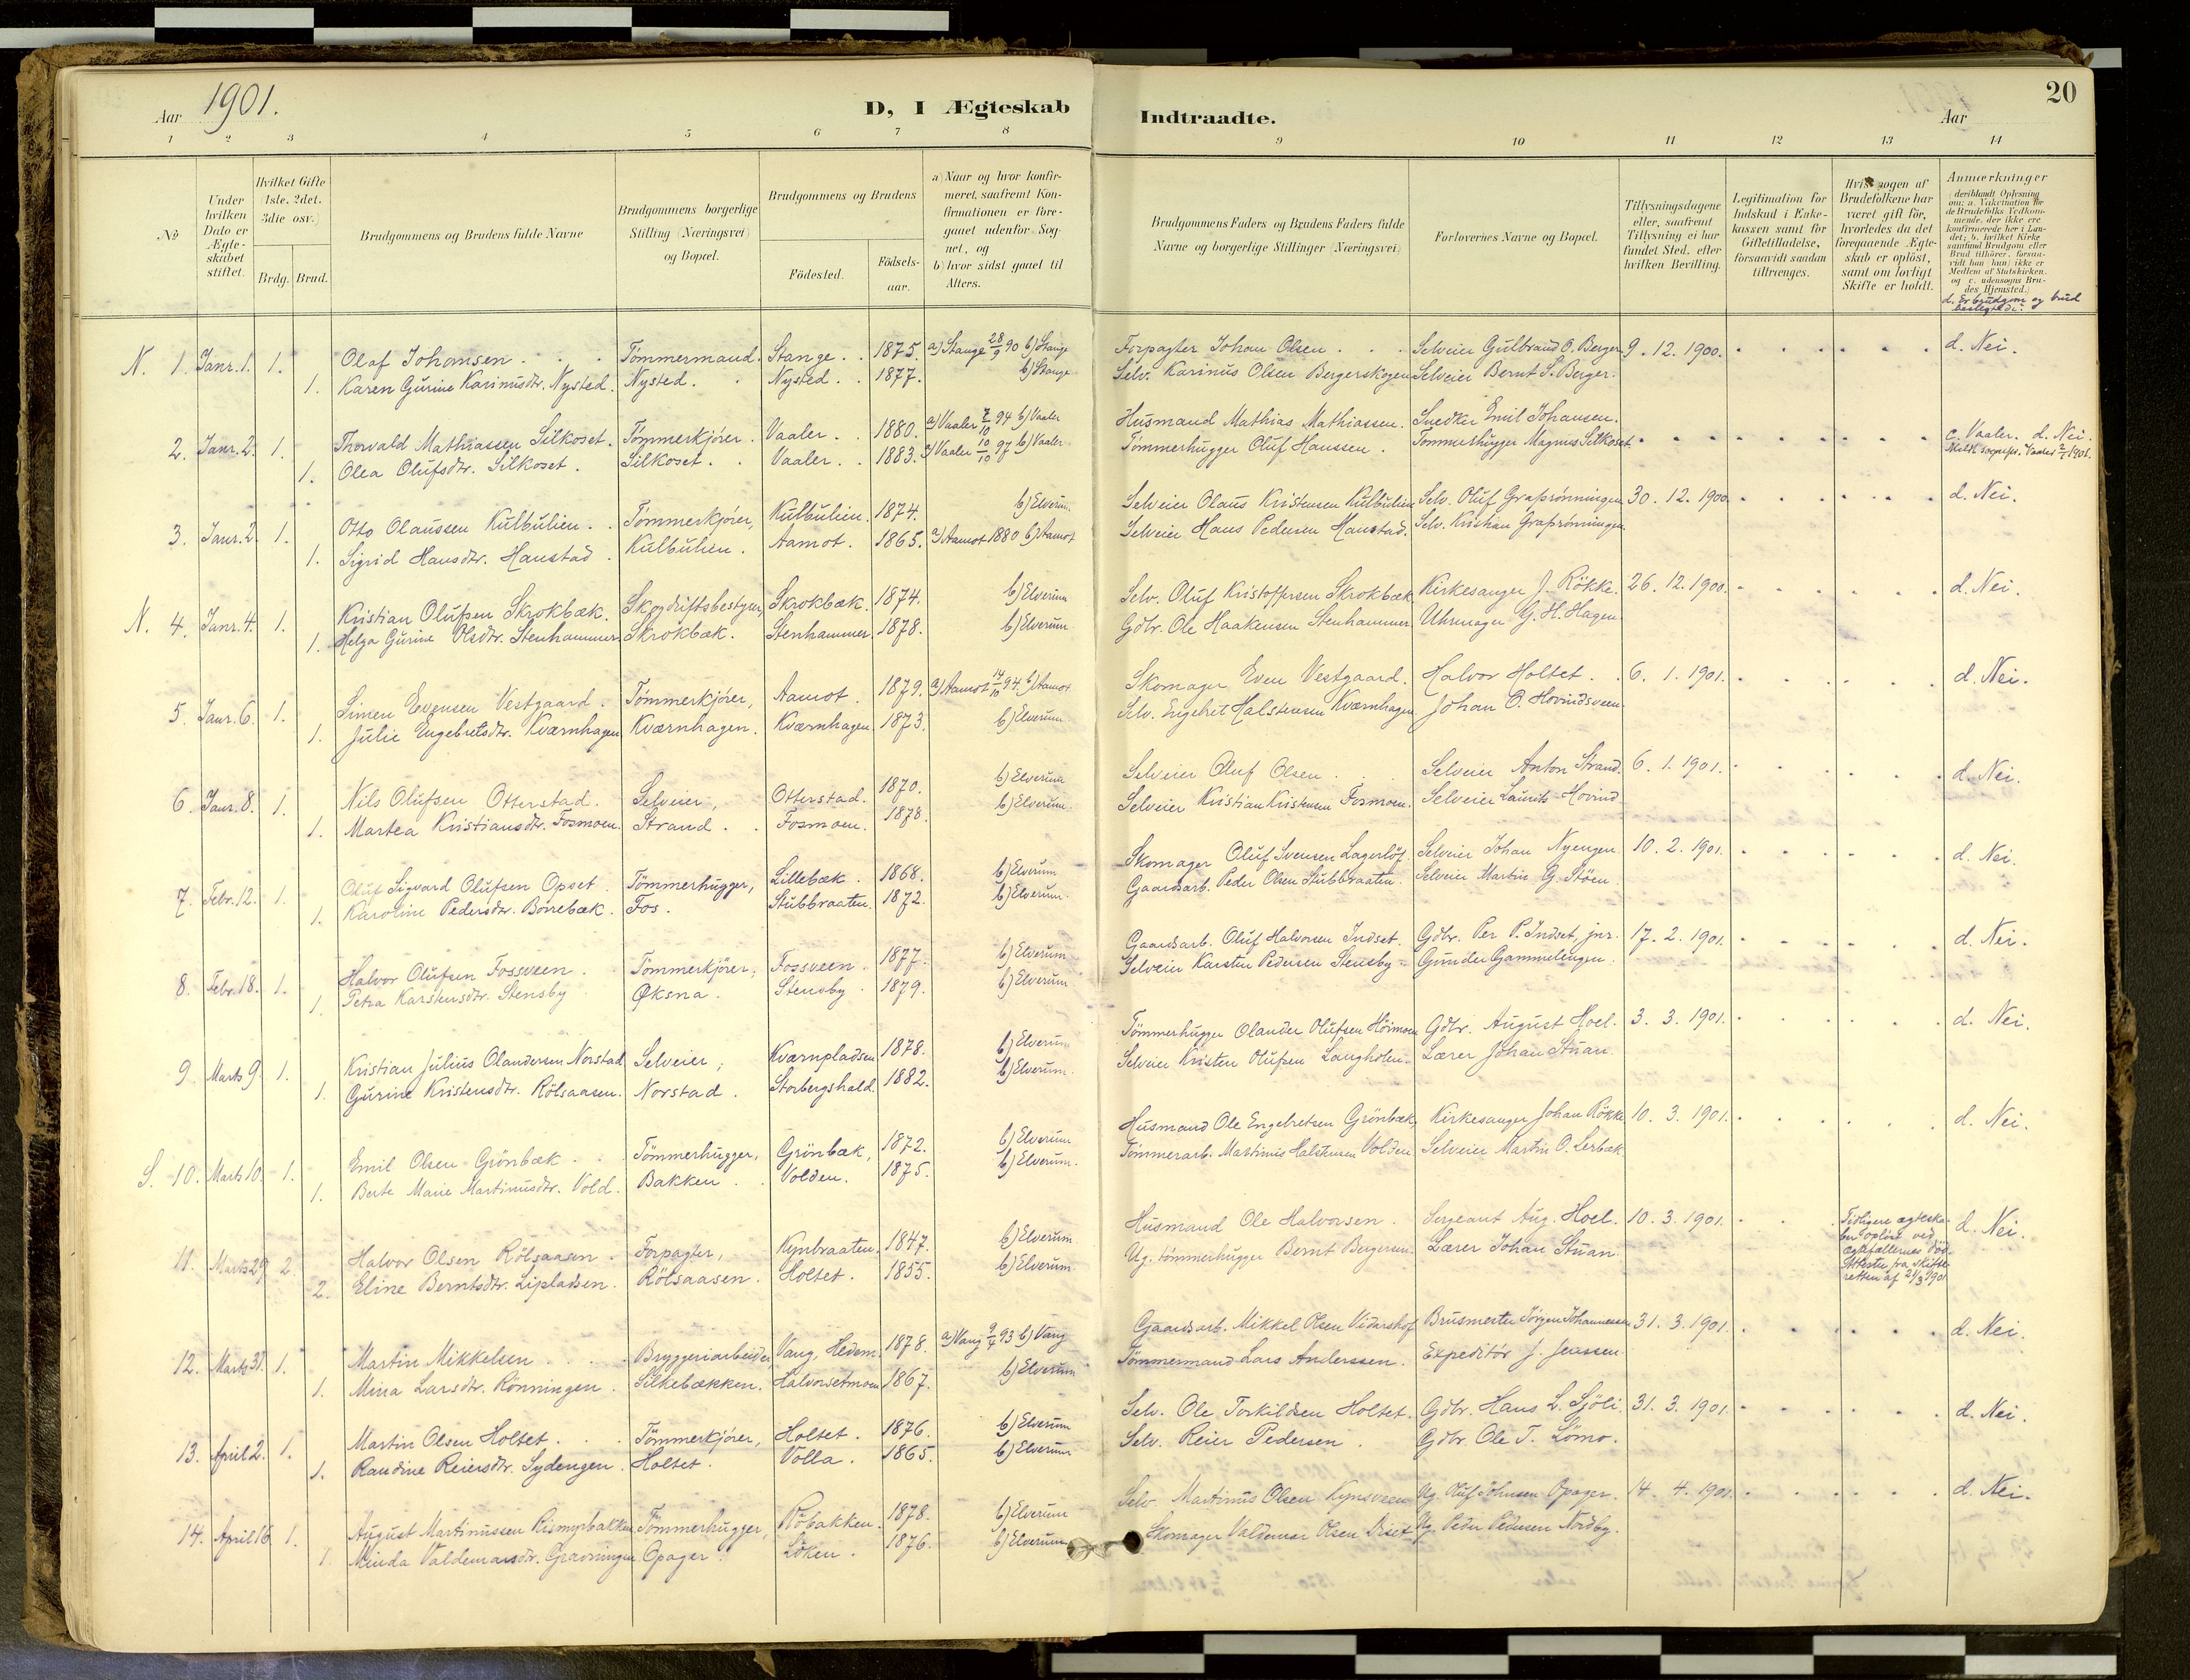 Aar 1901.
D, I Ægteskab
Indtraadte.
Aar
20
1 2 3 4 5 6 7 8 9 10 11 12 13 14
No
Under hvilken Dato er Ægteskabet stiftet.
Hvilket Gifte (1ste, 2det, 3die osv.)
Brdg. Brud.
Brudgommens og Brudens fulde Navne
Brudgommens borgerlige Stilling (Næringsvei) og Bopæl.
Brudgommens og Brudens
Födested.
Födselsaar.
a) Naar og hvor konfirmeret, saafremt Konfirmationen er foregaaet udenfor Sognet, og
b) hvor sidst gaaet til Alters.
Brudgommens Faders og Brudens Faders fulde Navne og borgerlige Stillinger (Næringsvei)
Forlovernes Navne og Bopæl.
Tillysningsdagene eller, saafremt Tillysning ei har fundet Sted, efter hvilken Bevilling.
Legitimation for Indskud i Enkekassen samt for Giftetilladelse, forsaavidt saadan tiltrænges.
Hvis nogen af Brudefolkene har været gift för, hvorledes da det foregaaende Ægteskab er oplöst, samt om lovligt Skifte er holdt.
Anmerkninger (deriblandt Oplysning om: a. Vakcination for de Brudefolks Vedkommende, der ikke ere konfirmerede her i Landet; b. hvilket Kirkesamfund Brudgom eller Brud tilhörer, forsaavidt han (hun) ikke er Medlem af Statskirken, og c. udensogns Brudes Hjemsted.)
d. Er brudgom og brud beslegtede?
N. 1. Janr. 1. 1. Olaf Johansen Tömmermand. Stange. 1875. a) Stange 28/9 90 b) Stange Forpagter Johan Olsen Selveier Gulbrand O. Berger 9.12.1900. d. Nei.
1. Karen Gurine Karinusdtr. Nysted. Nysted. Nysted. 1877. b) Stange Selv. Karinus Olsen Bergerskogen Selveier Bernt S. Berger.
2. Janr. 2. 1. Thorvald Mathiassen Silkoset. Tömmerkjörer. Vaaler. 1880. a) Vaaler 7/10 94 b) Vaaler Husmand Mathias Mathiassen. Snedker Emil Johansen. c. Vaaler. d. Nei.
1. Olea Olufsdtr. Silkoset. Silkoset. Vaaler. 1883. a) Vaaler 10/10 97 b) Vaaler Tömmerhugger Oluf Hanssen. Tömmerhugger Magnus Silkoset.
3. Janr. 2. 1. Otto Olaussen Kulbulien. Tömmerkjörer, Kulbulien. 1874. b) Elverum. Selveier Olaus Kristensen Kulbulien Selv. Oluf Grafsrönningen 30.12.1900. d. Nei.
1. Sigrid Hansdtr. Hanstad. Kulbulien. Aamot. 1865. a) Aamot 1880 b) Aamot Selveier Hans Pedersen Hanstad. Selv. Kristian Grafsrönningen
N. 4. Janr. 4. 1. Kristian Olufsen Skrokbæk. Skogdriftsbestyrer, Skrokbæk. 1874. b) Elverum Selv. Oluf Kristoffersen Skrokbæk Kirkesanger J. Rökke. 26.12.1900. d. Nei.
1. Helga Gurine Olsdtr. Stenhammer Skrokbæk. Stenhammer. 1878. b) Elverum Gdbr. Ole Haakensen Stenhammer Uhrmager G. H. Hagen.
5. Janr. 6. 1. Simen Evensen Vestgaard. Tömmerkjörer, Aamot. 1879. a) Aamot 14/10 94. b) Aamot Skomager Even Vestgaard. Halvor Holtet. 6.1.1901. d. Nei.
1. Julie Engebretsdtr. Kværnhagen Kværnhagen. Kværnhagen. 1873. b) Elverum Selv. Engebret Halstensen Kværnhagen. Johan O. Hovindsveen.
6. Janr. 8. 1. Nils Olufsen Otterstad. Selveier, Otterstad. 1870. b) Elverum Selveier Oluf Olsen. Selveier Anton Strand. 6.1.1901. d. Nei.
1. Martea Kristiansdtr. Fosmoen. Strand. Fosmoen. 1878. b) Elverum Selveier Kristian Kristensen Fosmoen. Selveier Laurits Hovind
7. Febr. 12. 1. Oluf Sigvard Olufsen Opset. Tömmerhugger, Lillebæk. 1868. b) Elverum Skomager Oluf Svensen Lagerlöf. Selveier Johan Nyengen 10.2.1901. d. Nei.
1. Karoline Pedersdtr. Borrebæk. Fos. Stubbraaten. 1872. b) Elverum. Gaardsarb. Peder Olsen Stubbraaten. Selveier Martin G. Stöen
8. Febr. 18. 1. Halvor Olufsen Fossveen. Tömmerkjörer, Fossveen. 1877. b) Elverum Gaardsarb. Oluf Halvorsen Indset. Gdbr. Per P. Indset, jnr. 17.2.1901. d. Nei.
1. Petra Karstensdtr. Stensby Øksna. Stensby. 1879. b) Elverum Selveier Karsten Pedersen Stensby. Gunder Gammelengen.
9. Marts 9. 1. Kristian Julius Olandersen Norstad Selveier, Kværnpladsen 1878. b) Elverum Tömmerhugger Olander Olufsen Höimoen Gdbr. August Hoel. 3.3.1901. d. Nei.
1. Gurine Kristensdtr. Rölsaasen. Norstad. Storbergshald. 1882. b) Elverum. Selveier Kristen Olufsen Langholen Lærer Johan Stuan.
S. 10. Marts 10. 1. Emil Olsen Grönbæk. Tömmerhugger, Grönbæk, 1872. b) Elverum Husmand Ole Engebretsen Grönbæk, Kirkesanger Johan Rökke 10.3.1901. d. Nei.
1. Berte Marie Martinusdtr. Vold. Bakken. Volden. 1875. b) Elverum. Tömmerarb. Martinus Halstensen Volden Selveier Martin O. Lerbæk
11. Marts 29. 2. Halvor Olsen Rölsaasen. Forpagter, Kynbraaten. 1847. b) Elverum Husmand Ole Halvorsen. Sergeant Aug. Hoel. 10.3.1901. Tidligere ægteskaber oplöst ved ægtefællernes död. Attester fra skifteretten af 21/3 1901 d. Nei.
2. Eline Berntsdtr. Lipladsen. Rölsaasen. Holtet. 1855. b) Elverum Ug. tömmerhugger Bernt Bergersen Lærer Johan Stuan.
12. Marts 31. 1. Martin Mikkelsen Bryggeriarbeider, Vang, Hedem. 1878. a) Vang 9/4 93 b) Vang Gaardsarb. Mikkel Olsen Vidarshof Brusmester Jörgen Johannessen 31.3.1901. d. Nei.
1. Mina Larsdtr. Rönningen. Silkebækken. Halvorsetmoen 1867. b) Elverum Tömmermand Lars Anderssen. Expeditör J. Jenssen
13. April 2. 1. Martin Olsen Holtet. Tömmerkjörer, Holtet. 1876. b) Elverum Selv. Ole Torkildsen Holtet. Gdbr. Hans L. Sjöli. 31.3.1901. d. Nei.
1. Randine Reiersdtr. Sydengen. Holtet. Volla. 1865. b) Elverum Selv. Reier Pedersen. Gdbr. Ole T. Lömo.
14. April 16. 1. August Martinussen Rismyrbakken Tömmerhugger, Röbakken. 1878. b) Elverum Selv. Martinus Olsen Kynsveen Ug. Oluf Johnsen Opager. 14.4.1901. d. Nei.
1. Minda Valdemarsdtr. Gravningen Opager. Löken. 1876. b) Elverum Skomager Valdemar Olsen Diset Ug. Peder Pedersen Nordby.